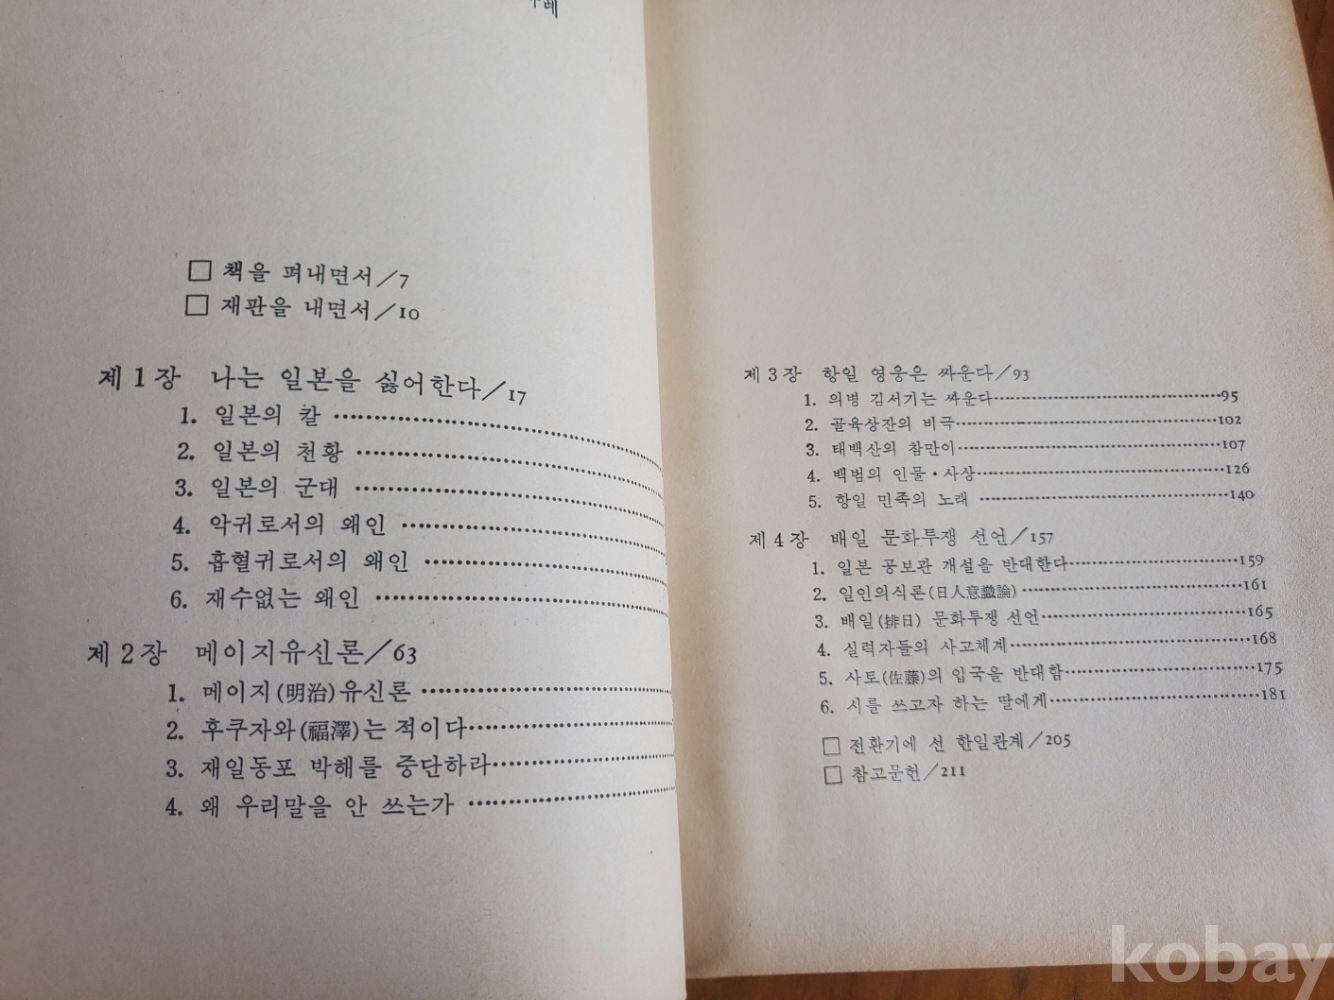 □ 책을 펴내면서/7
□ 재판을 내면서/10
제1장 나는 일본을 싫어한다/17
1. 일본의 칼
2. 일본의 천황
3. 일본의 군대
4. 악귀로서의 왜인
5. 흡혈귀로서의 왜인
6. 재수없는 왜인
제2장 메이지유신론/63
1. 메이지(明治)유신론
2. 후쿠자와(福澤)는 적이다
3. 재일동포 박해를 중단하라
4. 왜 우리말을 안 쓰는가
제3장 항일 영웅은 싸운다/93
1. 의병 김서기는 싸운다 95
2. 골육상잔의 비극 102
3. 태백산의 참만이 107
4. 백범의 인물·사상 126
5. 항일 민족의 노래 140
제4장 배일 문화투쟁 선언/157
1. 일본 공보관 개설을 반대한다 159
2. 일인의식론(日人意識論) 161
3. 배일(排日) 문화투쟁 선언 165
4. 실력자들의 사고체계 168
5. 사토(佐藤)의 입국을 반대함 175
6. 시를 쓰고자 하는 딸에게 181
□ 전환기에 선 한일관계/205
□ 참고문헌/211
kobay